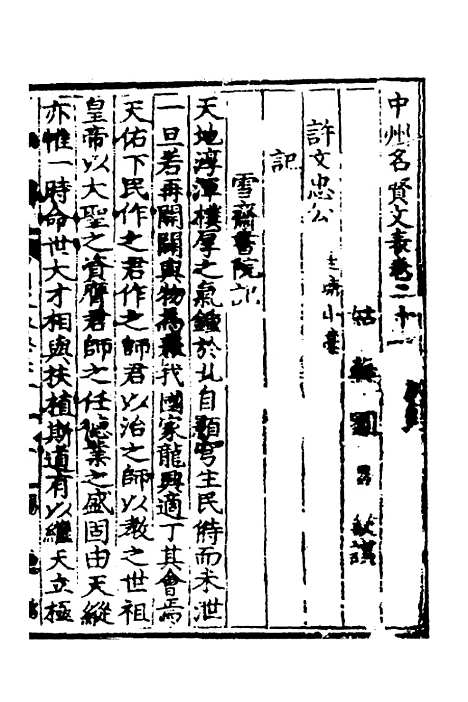 中州名賢文表卷二十一
姑蘇劉昌欽謨
許文忠公
圭塘小藁
記
雪齋書院記
天地淳渾樸厚之氣鍾於北自顓穹生民恃而未泄
一旦若再開闢與物為我國家龍興適丁其會焉
天佑下民作之君作之師君以治之師以教之世祖
皇帝以大聖之資膺君師之任德業之盛固由天縱
亦惟一時命世大才相與扶植斯道有以繼天立極